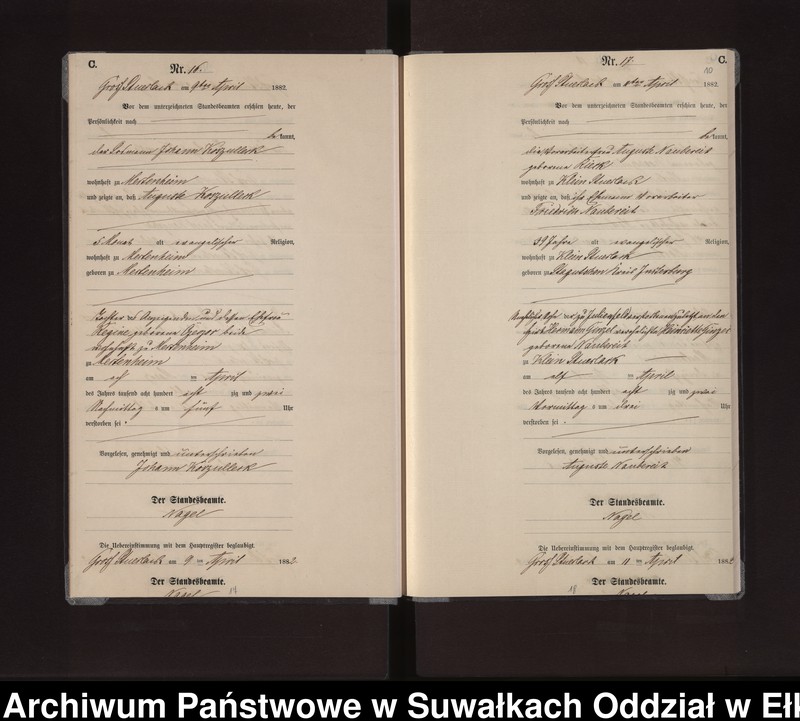 C.
Nr. 16.
Groß Stuerlack am 9ten April 1882.
Vor dem unterzeichneten Standesbeamten erschien heute, der
Persönlichkeit nach
be kannt,
der Losmann Johann Korzulleck
wohnhaft zu Mertenheim
und zeigte an, daß Auguste Korzulleck
alt evangelischer Religion,
wohnhaft zu Mertenheim
geboren zu Mertenheim
Tochter des Anzeigenden und dessen Ehefrau
Regine geborene beide
wohnhaft zu Mertenheim
zu Mertenheim
am acht ten April
des Jahres tausend acht hundert acht zig und zwei
Nachmittag s um fünf Uhr
verstorben sei.
Vorgelesen, genehmigt und unterschrieben
Johann Korzulleck
Der Standesbeamte.
Nagel
Die Uebereinstimmung mit dem Hauptregister beglaubigt.
Groß Stuerlack am 9 ten April 1882.
Der Standesbeamte.
Nagel
C.
10
Nr. 17.
Groß Stuerlack am April 1882
Vor dem unterzeichneten Standesbeamten erschien heute, der
Persönlichkeit nach
be kannt,
die Vorarbeiterfrau Auguste Naubereit
geborene
wohnhaft zu Klein Stuerlack
und zeigte an, daß ihr Ehemann Vorarbeiter
Friedrich Naubereit
39 Jahre alt evangelischer Religion,
wohnhaft zu Klein Stuerlack
geboren zu Kreis Insterburg
geborene Naubereit
zu Klein Stuerlack
am elf ten April
des Jahres tausend acht hundert acht zig und zwei
Vormittag s um drei Uhr
verstorben sei.
Vorgelesen, genehmigt und unterschrieben
Auguste Naubereit
Der Standesbeamte.
Nagel
Die Uebereinstimmung mit dem Hauptregister beglaubigt.
Groß Stuerlack am 11 ten April 1882
Der Standesbeamte.
Nagel
Archiwum Państwowe w Suwałkach Oddział w Ełk